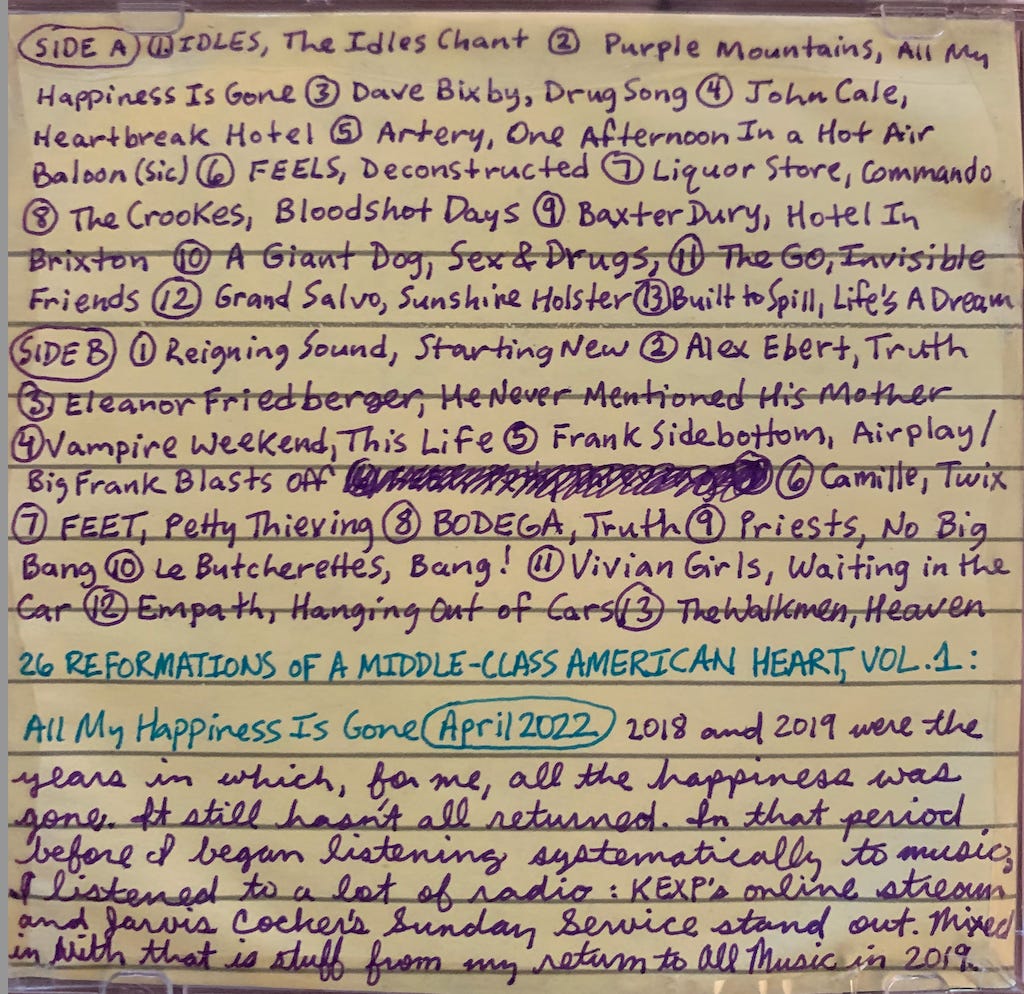 SIDE A ① IDLES, The Idles Chant ② Purple Mountains, All My
Happiness Is Gone ③ Dave Bixby, Drug Song ④ John Cale,
Heartbreak Hotel ⑤ Artery, One Afternoon In a Hot Air
Baloon (sic) ⑥ FEELS, Deconstructed ⑦ Liquor Store, Commando
⑧ The Crookes, Bloodshot Days ⑨ Baxter Dury, Hotel In
Brixton ⑩ A Giant Dog, Sex & Drugs, ⑪ The Go, Invisible
Friends ⑫ Grand Salvo, Sunshine Holster ⑬ Built to Spill, Life's A Dream
SIDE B ① Reigning Sound, Starting New ② Alex Ebert, Truth
③ Eleanor Friedberger, He Never Mentioned His Mother
④ Vampire Weekend, This Life ⑤ Frank Sidebottom, Airplay/
Big Frank Blasts Off ⑥ Camille, Twix
⑦ FEET, Petty Thieving ⑧ BODEGA, Truth ⑨ Priests, No Big
Bang ⑩ Le Butcherettes, Bang! ⑪ Vivian Girls, Waiting in the
Car ⑫ Empath, Hanging Out of Cars ⑬ The Walkmen, Heaven
26 REFORMATIONS OF A MIDDLE-CLASS AMERICAN HEART, VOL.1:
All My Happiness Is Gone April 2022 2018 and 2019 were the
years in which, for me, all the happiness was
gone. It still hasn't all returned. In that period,
before I began listening systematically to music,
I listened to a lot of radio: KEXP's online stream
and Jarvis Cocker's Sunday Service stand out. Mixed
in with that is stuff from my return to All Music in 2019.